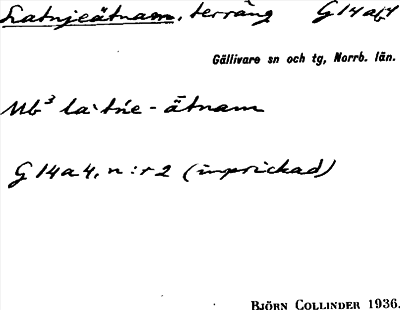 Latnjeätnam, terräng G 14 a 4
Gällivare sn och tg, Norrb. län.
Nb³ la·tńe - ätnam
G 14 a 4, n:r 2 (inprickad)
BJÖRN COLLINDER 1936.